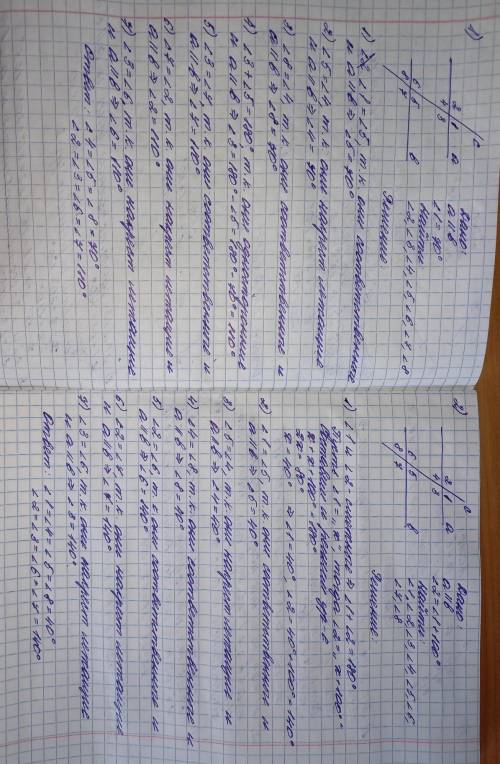 1)
c
2 1 a
4 3
6 5
8 7 b
Дано:
a||b
∠1 = 70°
Найти:
∠2, ∠3, ∠4, ∠5, ∠6, ∠7, ∠8
Решение:
1) ∠1 = ∠5, т.к они соответственные
и a||b ⇒ ∠5 = 70°
2) ∠5 = ∠4, т.к они накрест лежащие
и a||b ⇒ ∠4 = 70°
3) ∠8 = ∠4, т.к они соответственные и
a||b ⇒ ∠8 = 70°
4) ∠3 + ∠5 = 180° т.к они односторонние
и a||b ⇒ ∠3 = 180° - ∠5 = 180° - 70° = 110°
5) ∠3 = ∠7, т.к они соответственные и
a||b ⇒ ∠7 = 110°
6) ∠7 = ∠2, т.к они накрест лежащие и
a||b ⇒ ∠2 = 110°
7) ∠3 = ∠6, т.к они накрест лежащие
и a||b ⇒ ∠6 = 110°
Ответ: ∠4 = ∠5 = ∠8 = 70°
∠2 = ∠3 = ∠6 = ∠7 = 110°
2)
c
2 1 a
4 3
6 5
8 7 b
Дано:
a||b
∠2 = ∠1 + 100°
Найти:
∠1, ∠2, ∠3, ∠4, ∠5, ∠6,
∠7, ∠8
Решение:
1) ∠1 и ∠2 смежные ⇒ ∠1 + ∠2 = 180°
Пусть ∠1 = "x", тогда ∠2 = "x + 100°"
Составим и решим ур-е
x + x + 100° = 180°
2x = 80°
x = 40° ⇒ ∠1 = 40°, ∠2 = 40° + 100° = 140°
2) ∠1 = ∠5, т.к они соответственные и
a||b ⇒ ∠5 = 40°
3) ∠5 = ∠4, т.к они накрест лежащие и
a||b ⇒ ∠4 = 40°
4) ∠4 = ∠8, т.к они соответственные и
a||b ⇒ ∠8 = 40°
5) ∠2 = ∠6, т.к они соответственные и
a||b ⇒ ∠6 = 140°
6) ∠2 = ∠7, т.к они накрест лежащие
и a||b ⇒ ∠7 = 140°
7) ∠3 = ∠6, т.к они накрест лежащие
и a||b ⇒ ∠3 = 140°
Ответ: ∠1 = ∠4 = ∠5 = ∠8 = 40°
∠2 = ∠3 = ∠6 = ∠7 = 140°